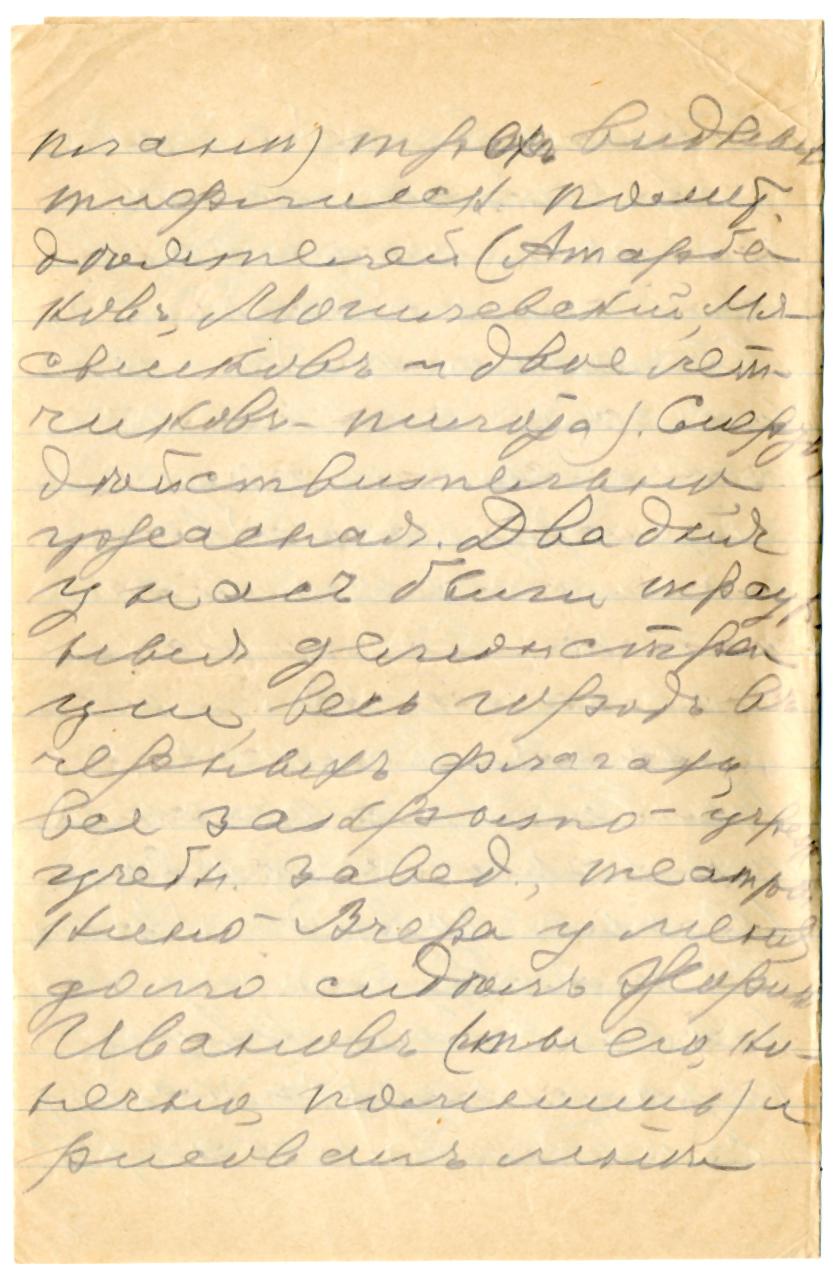 трехъ видны
тифлисск. полит.
дѣятелей (Атарбе
ковъ, Могилевскій, Мя-
сниковъ и двое лет-
чиковъ-пилота). Смерть
дѣйствительно,
ужасная. Два дня
у насъ были траур
ныя демонстра
ціи, весь городъ въ
черныхъ флагахъ,
все закрыто - учрежд
учебн. завед., театры
кино - Вчера у меня
долго сидѣлъ Жоржик
Ивановъ (ты его, ко-
нечно, помнишь) и
рисовалъ мнѣ